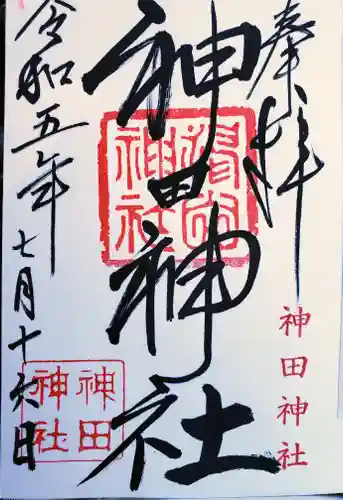 奉拝
神田神社
神田神社
令和五年七月十六日
神田神社